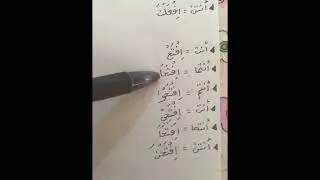 أَنْتُنَّ = اِفْعَلْنَ
أَنْتَ = اِفْتَحْ
أَنْتُمَا = اِفْتَحَا
أَنْتُمْ = اِفْتَحُوا
أَنْتِ = اِفْتَحِي
أَنْتُمَا = اِفْتَحَا
أَنْتُنَّ = اِفْتَحْنَ